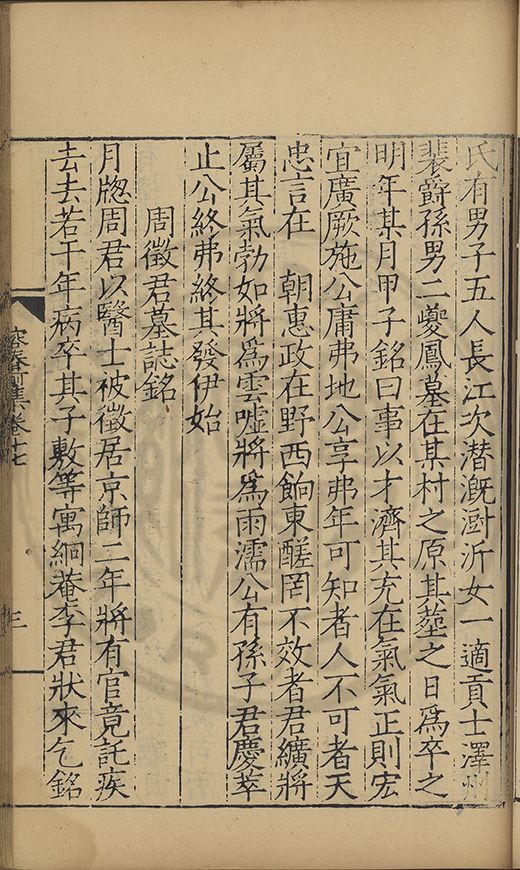 氏有男子五人長江次潜漑澍沂女一適貢士澤州
裴爵孫男二夔鳳墓在某村之原其塟之日為卒之
明年某月甲子銘曰事以才濟其充在氣氣正則宏
宜廣厥施公庸弗地公享弗年可知者人不可者天
忠言在　朝惠政在野西餉東醝罔不效者君纊將
屬其氣勃如將爲雲嘘將爲雨濡公有孫子君慶萃
止公終弗終其發伊始
周徵君墓誌銘
月牕周君以醫士被徵居京師二年將有官竟託疾
去去若干年病卒其子敷等寓絅菴李君狀來乞銘
容春前集卷十七
三